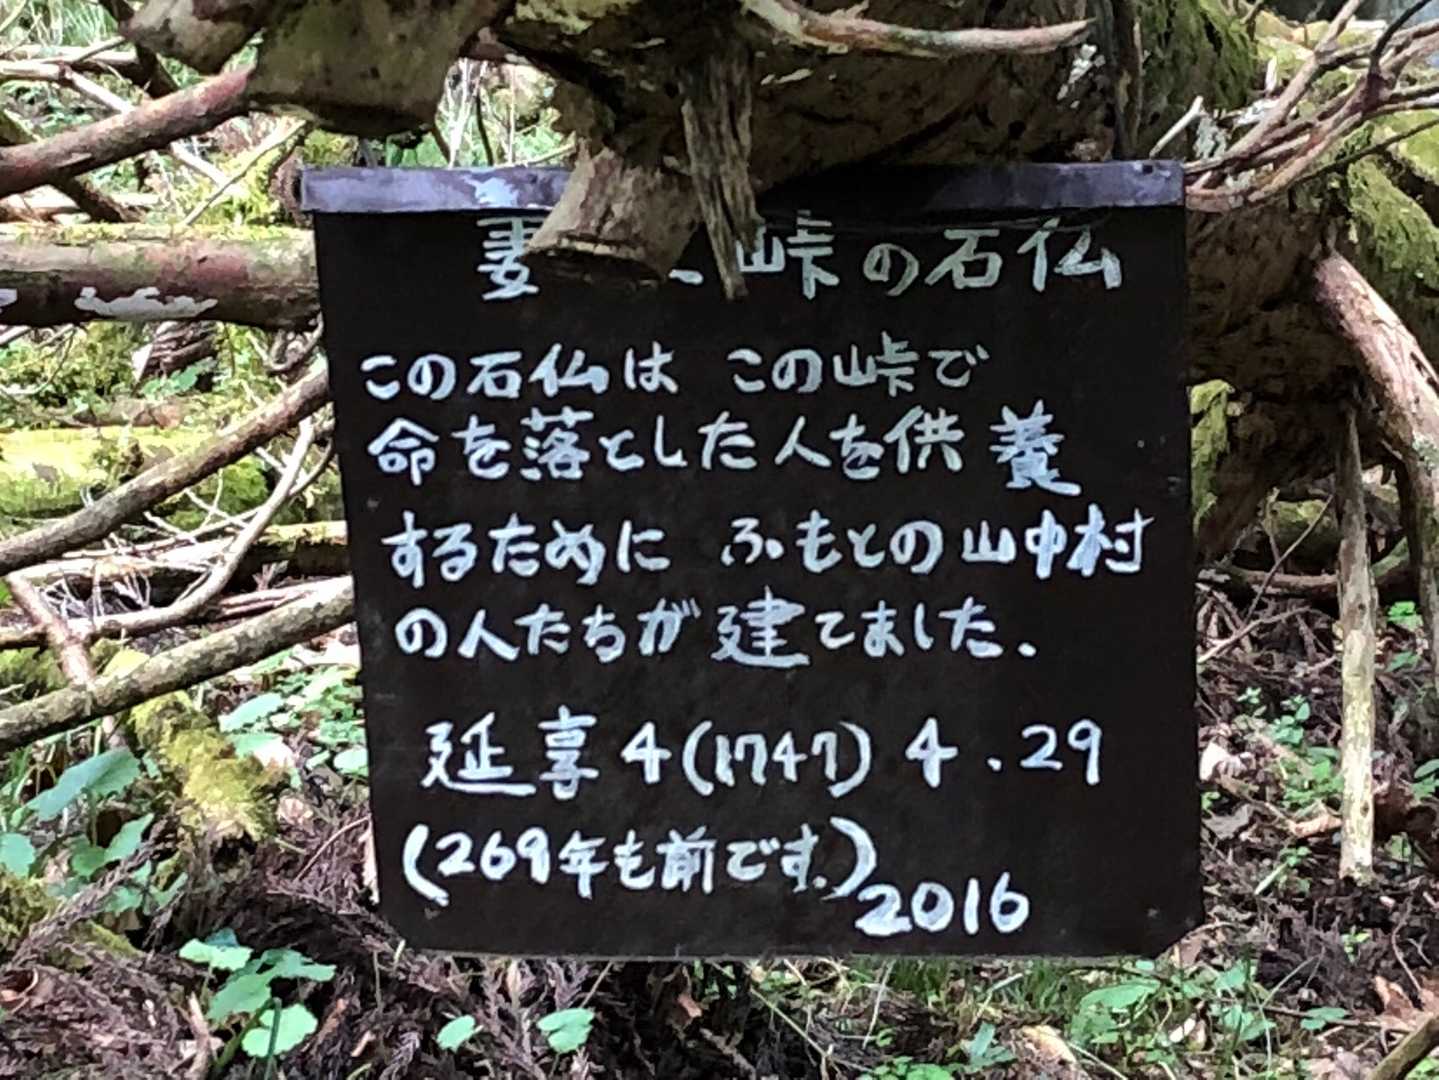 妻 峠の石仏
この石仏は この峠で
命を落とした人を供養
するために ふもとの山中村
の人たちが建てました.
延享4(1747) 4.29
(269年も前です.)
2016